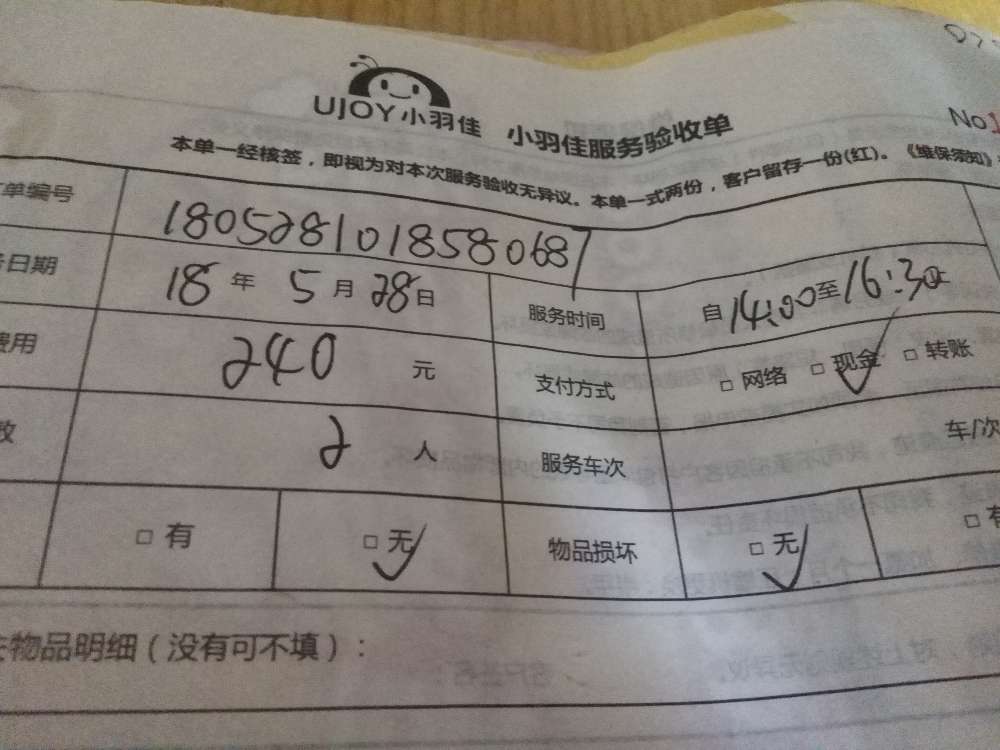 UJOY小羽佳 小羽佳服务验收单
No
本单一经核签，即视为对本次服务验收无异议。本单一式两份，客户留存一份(红)。《维保须知》
单编号 1805281018580687
日期 18 年 5 月 28 日 服务时间 自14:00至16:30止
费用 240 元 支付方式 □ 网络 □ 现金 □ 转账
数 2 人 服务车次 车/次
□ 有 □ 无 物品损坏 □ 无 □ 有
物品明细（没有可不填）：